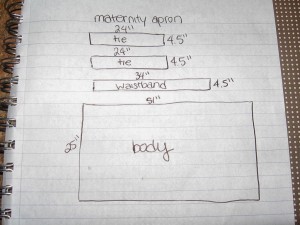 maternity apron
24"
tie 4.5"
24"
tie 4.5"
34"
waistband 4.5"
51"
25" body